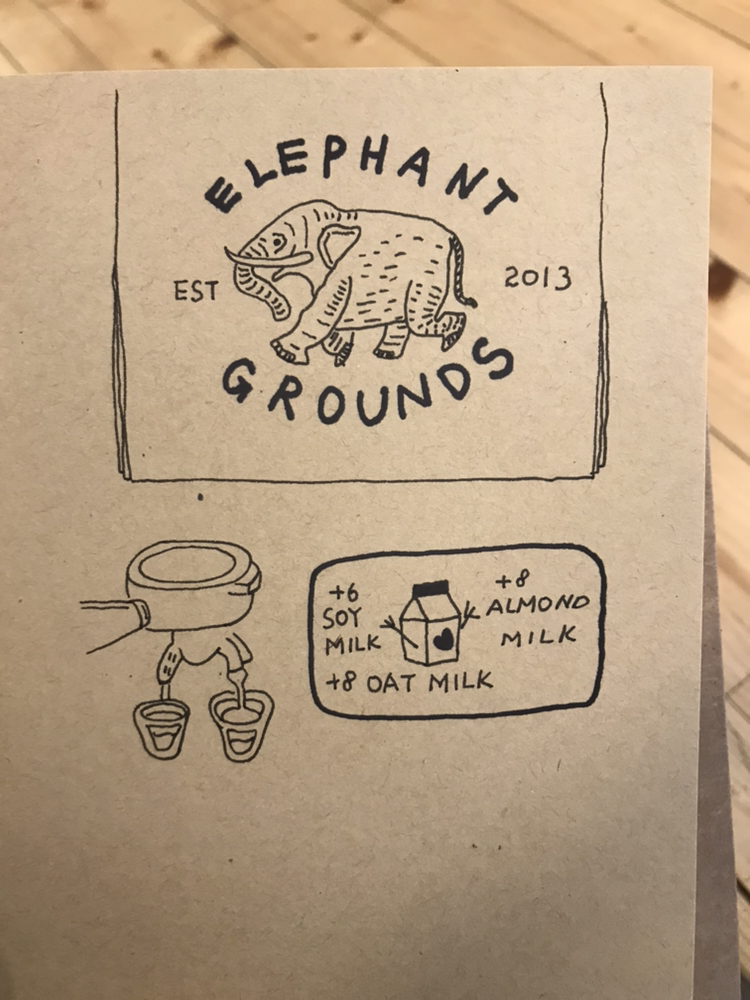 ELEPHANT
EST 2013
GROUNDS
+6
SOY
MILK
+8
ALMOND
MILK
+8 OAT MILK